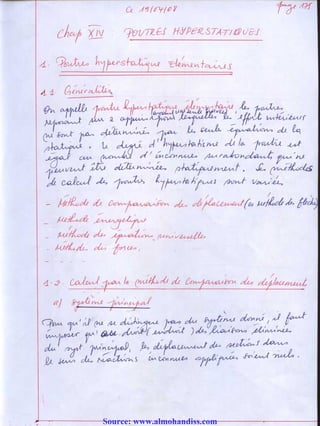 Le 15/04/08
page 125
Chap XIV POUTRES HYPERSTATIQUES
1. Poutres hyperstatiques Elémentaires
1.1 Généralités
On appelle poutre hyperstatique élémentaire la poutre
reposant sur 2 appuis pour lesquelles les efforts intérieurs
ne sont pas déterminés par les seules équations de la
statique. Le degré d'hyperstatisme de la poutre est
égal au nombre d'inconnues surabondantes qui ne
peuvent être déterminées statiquement. Les méthodes
de calcul des poutres hyperstatiques sont variées
- Méthode de Comparaison des déplacements (ou méthode de flexibi
- Méthode énergétique
- Méthode des équations universelles
- Méthode des forces.
1-2 Calcul par la méthode de Comparaison des déplacements
a) Système principal
Pour qu'il ne se distingue pas du système donné, il faut
imposer qu'au droit (endroit) des liaisons éliminées
du syst principal, les déplacements des sections dans
le sens des réactions inconnues appliquées soient nuls.
Source: www.almohandiss.com